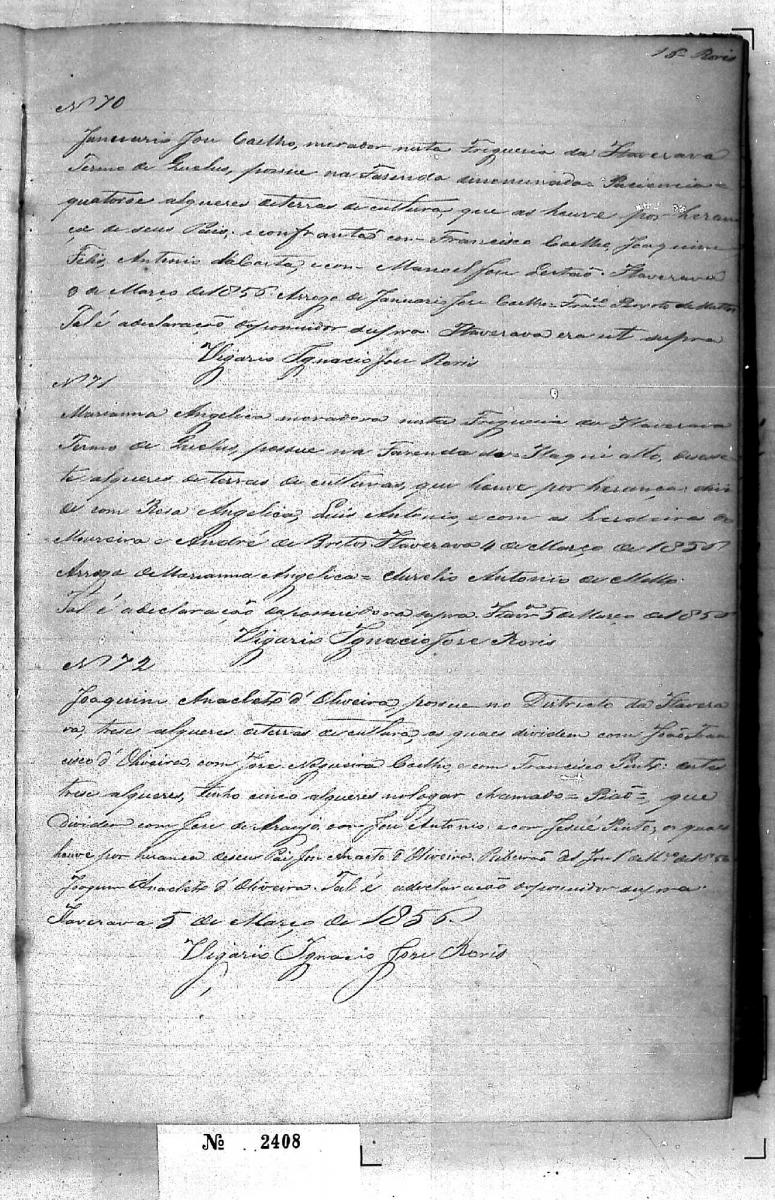 16 Roris
Nº 70
Januario Jose Coelho, morador nesta Freguesia da Itaverava
Termo de Queluz, possue na Fazenda denominada = Paciencia =
quatorse alqueres de terras de cultura, que as houve por heran
ça de seus Pais, e confrontão com Francisco Coelho, Joaquim
Felis, Antonio da Costa, e com Manoel Jose Sertaõ. Itaverava
3 de Março de 1856 Arrogo de Januario Jose Coelho = Franco Peixoto de Mattos
Tal é a declaração do possuidor supra. Itaverava era ut supra
Vigario Ignacio Jose Roris
Nº 71
Marianna Angelica moradora nesta Freguesia da Itaverava
Termo de Queluz, possue na Fazenda do = Itaqui alto, desese
te alqueres de terras de culturas, que houve por herança: divi
de com Rosa Angelica, Luis Antonio, e com as herdeiras de
Moureira e André de Bretos. Itaverava 4 de Março de 1856
Arrogo de Marianna Angelica = Aurelio Antonio de Mello.
Tal é a declaração da possuidora supra. Itavª 5 de Março de 1856
Vigario Ignacio Jose Roris
Nº 72
Joaquim Anacleto d'Oliveira, possue no Districto da Itavera
va, trese alqueres de terras de cultura, as quaes dividem com João Fran
cisco d'Oliveira, com Jose Nogueira Coelho, e com Francisco Pinto: destes
trese alqueres, tenho cinco alqueres no logar chamado = Piaõ =, que
dividem com Jose de Araujo, com Jose Antonio, e com Josué Pinto; os quaes
houve por herança de seus Pai Jose Anacto d'Oliveira. Ribeirão de S. Jose 1º de Mço de 1856
Joaquim Anacleto d'Oliveira. Tal é a declaração do possuidor supra.
Itaverava 5 de Março de 1856.
Vigario Ignacio Jose Roris
Nº 2408